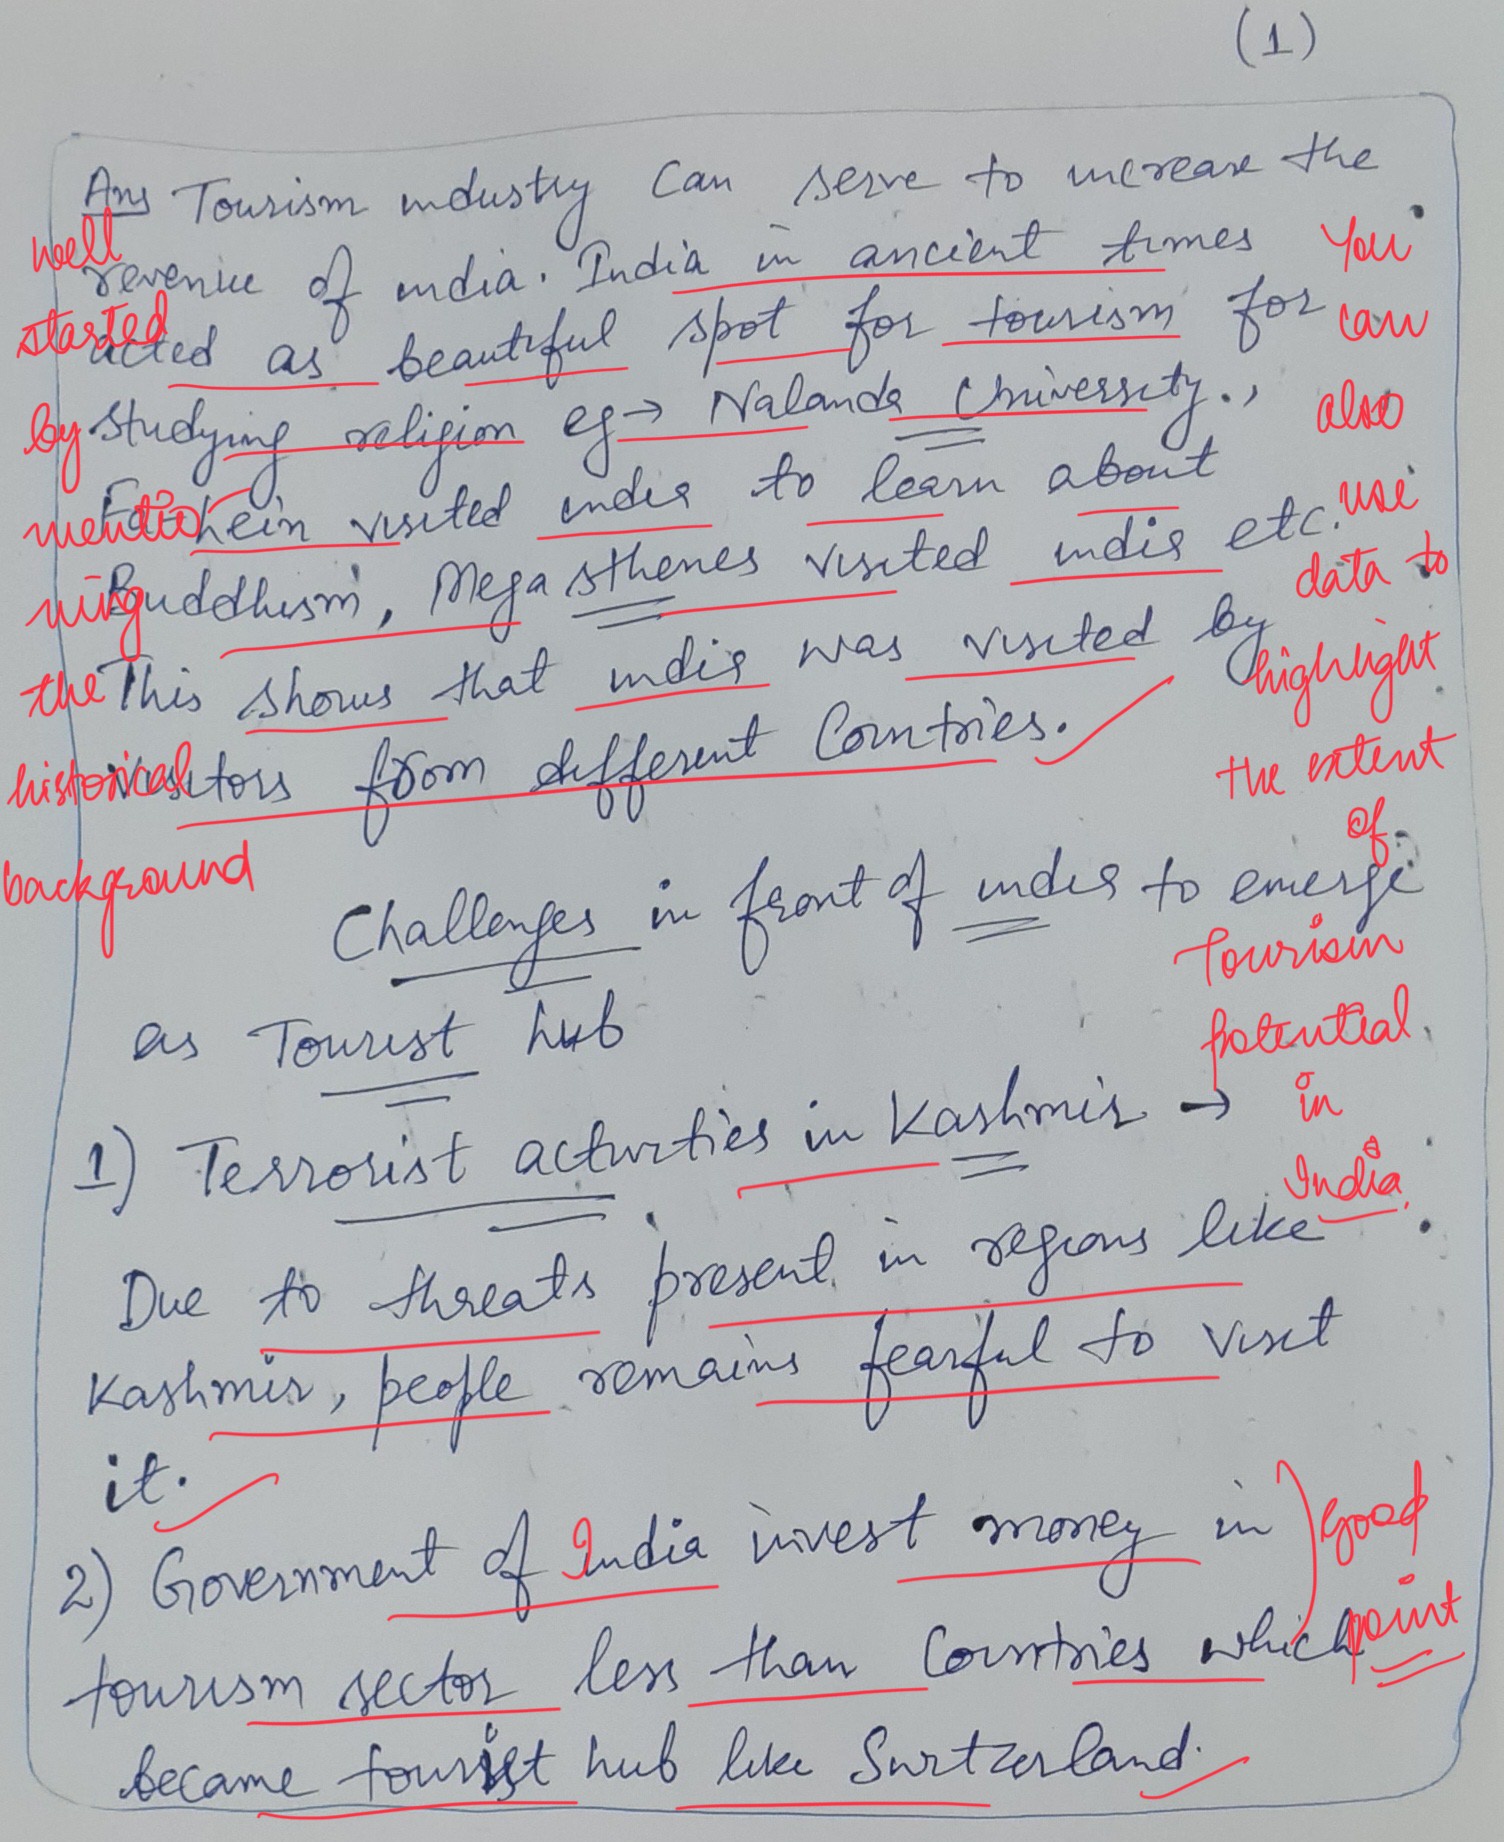 (1)
Ans Tourism industry Can serve to increase the
revenue of india. India in ancient times
acted as beautiful spot for tourism for
studying religion eg → Nalanda University.,
Fa hein visited india to learn about
Buddhism, Megasthenes visited india etc.
This shows that india was visited by
visitors from different Countries.
well
started
by
mentio
ning
the
historical
background
You
can
also
use
data to
highlight
the extent
of
Tourism
potential
in
India.
Challenges in front of india to emerge
as Tourist hub
1) Terrorist activities in Kashmir →
Due to threats present in regions like
Kashmir, people remains fearful to visit
it.
2) Government of India invest money in
tourism sector less than Countries which
became tourist hub like Switzerland.
Good
point